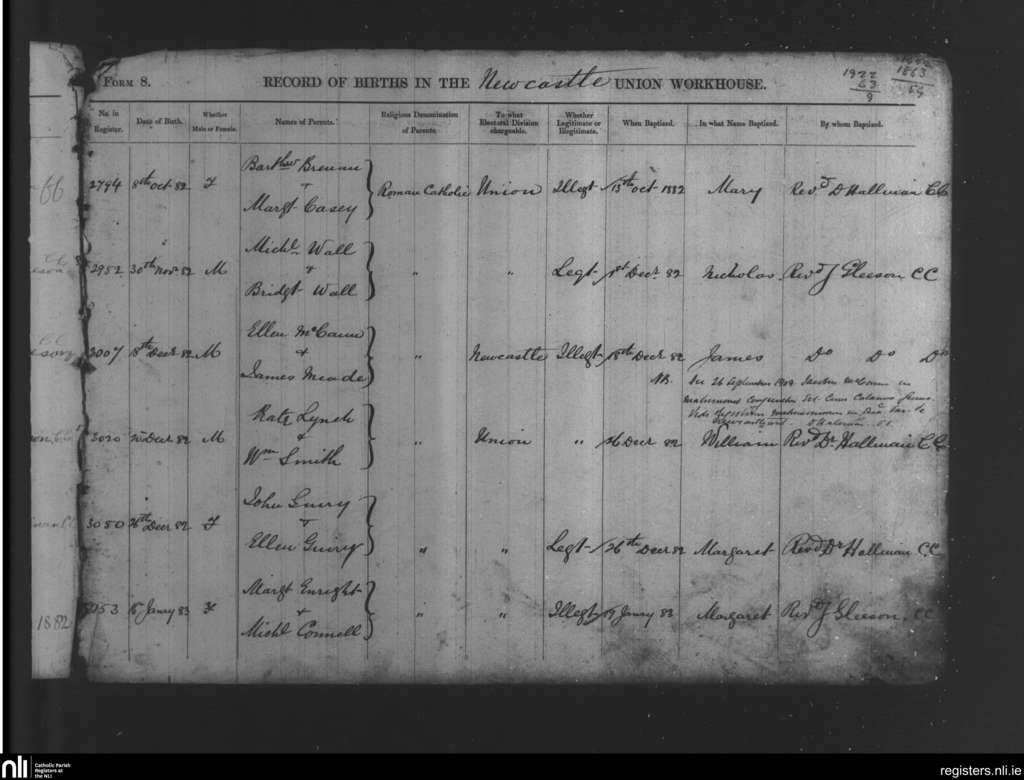 Form 8. RECORD OF BIRTHS IN THE Newcastle UNION WORKHOUSE.
1922
63
9
1863
59
No. in Register. Date of Birth. Whether Male or Female. Names of Parents. Religious Denomination of Parents. To what Electoral Division chargeable. Whether Legitimate or Illegitimate. When Baptized. In what Name Baptized. By whom Baptized.
Barthw Brenan
2794 8th Oct 82 F + Roman Catholic Union Illegt 13th Oct 1882 Mary Revd D Hallinan C C
Margt Casey
Michl Wall
2952 30th Novr 82 M + " " Legt 1st Decr 82 Nicholas Revd J Gleeson. C C
Bridgt Wall
Ellen McCann
3007 18th Decr 82 M + " Newcastle Illegt 18th Decr 82 James Do Do Do
James Meade
NB. Die 26 Septembris in
matrimonio
Vide
Kate Lynch
3020 Decr 82 M + " Union " 26 Decr 82 William Revd Dr Hallinan C C
Wm Smith
John Guiry
3050 26th Decr 82 F +
Ellen Guiry " " Legt 26th Decr 82 Margaret Revd Dr Hallinan C.C
Margt Enright
Janry 83 F + " " Illegt 19 Janry 83 Margaret Revd J Gleeson. CC
Michl Connell
1882
nli
Catholic Parish
Registers at
the NLI
registers.nli.ie